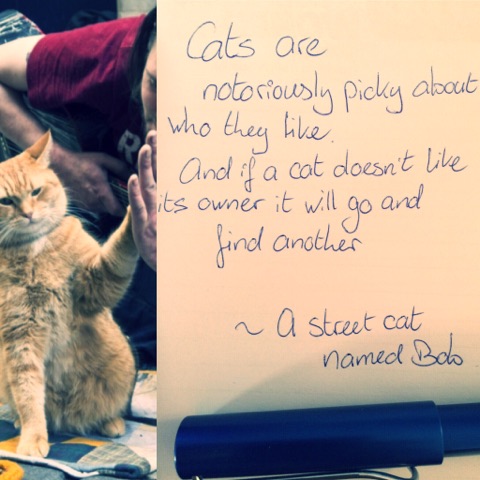 Cats are
notoriously picky about
who they like.
And if a cat doesn't like
its owner it will go and
find another
~ A street cat
named Bob